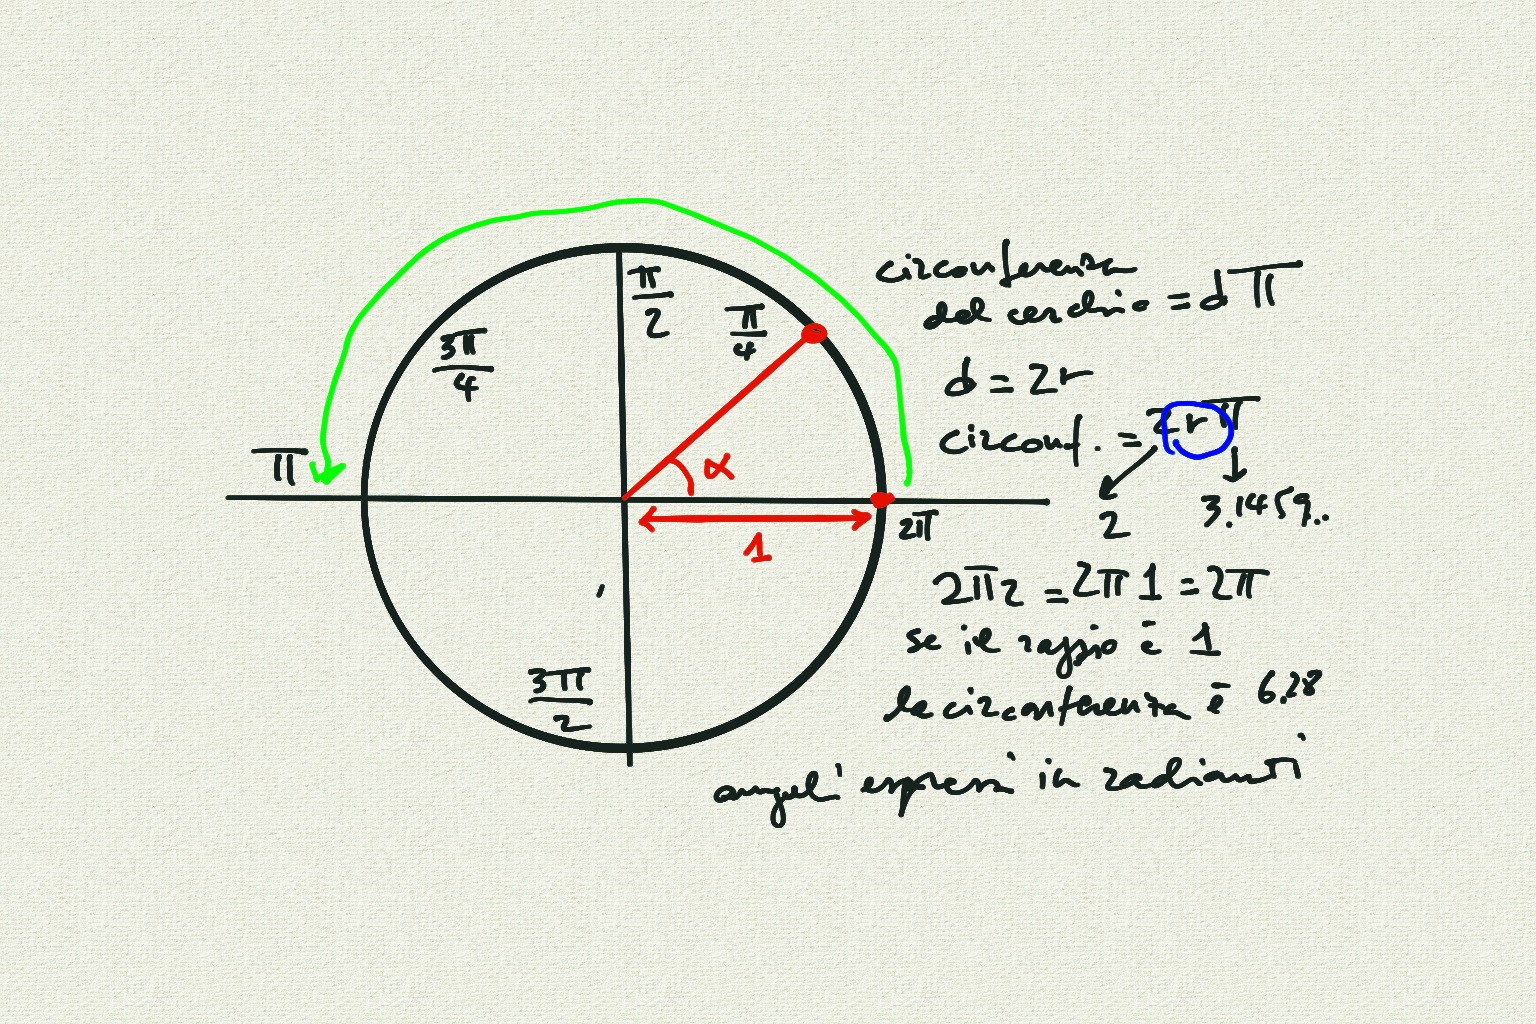 π/2
π/4
3π/4
π
α
1
2π
3π/2
circonferenza
del cerchio = d π
d = 2r
circonf. = 2 r π
2
3.1459..
2πr = 2π 1 = 2π
se il raggio è 1
la circonferenza è 6.28
angoli espressi in radianti